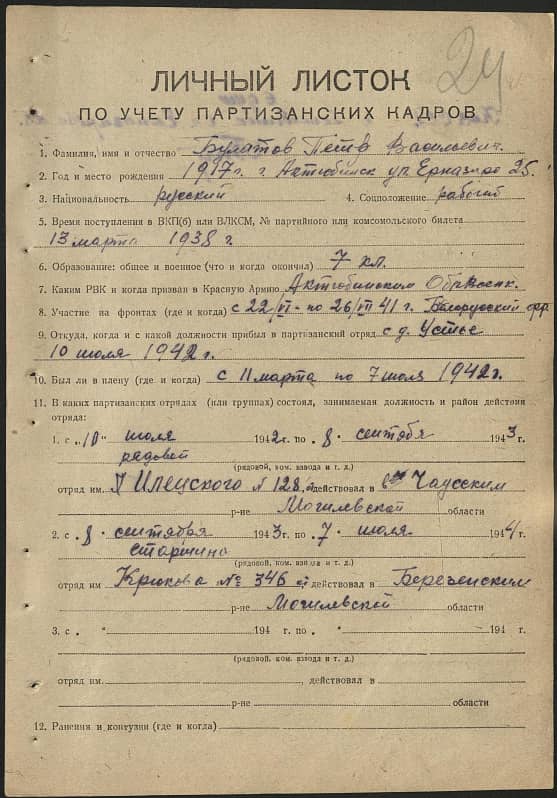 24
ЛИЧНЫЙ ЛИСТОК
ПО УЧЕТУ ПАРТИЗАНСКИХ КАДРОВ
1. Фамилия, имя и отчество Булатов Петр Васильевич.
2. Год и место рождения 1917 г. г. Актюбинск ул. 25.
3. Национальность русский 4. Соцположение рабочий
5. Время поступления в ВКП(б) или ВЛКСМ, № партийного или комсомольского билета
13 марта 1938 г.
6. Образование: общее и военное (что и когда окончил) 7 кл.
7. Каким РВК и когда призван в Красную Армию Актюбинским
8. Участие на фронтах (где и когда) с 22/VI - по 26/VII 41 г. Белорусский
9. Откуда, когда и с какой должности прибыл в партизанский отряд с д. Устье
10 июля 1942 г.
10. Был ли в плену (где и когда) с 11 марта по 7 июля 1942 г.
11. В каких партизанских отрядах (или группах) состоял, занимаемая должность и район действия
отряда:
1. с „10" июля 1942 г. по „8" сентября 1943 г.
рядовой
(рядовой, ком. взвода и т. д.)
отряд им. Илецкого № 128, действовал в Чаусском
р-не Могилевской области
2. с „8" сентября 1943 г. по „7" июля 1944 г.
старшина
(рядовой, ком. взвода и т. д.)
отряд им Крюкова № 346 действовал в Березенским
р-не Могилевской области
3. с „ " 194 г. по „ " 194 г.
(рядовой, ком. взвода и т. д.)
отряд им. , действовал в
р-не области
12. Ранения и контузии (где и когда)